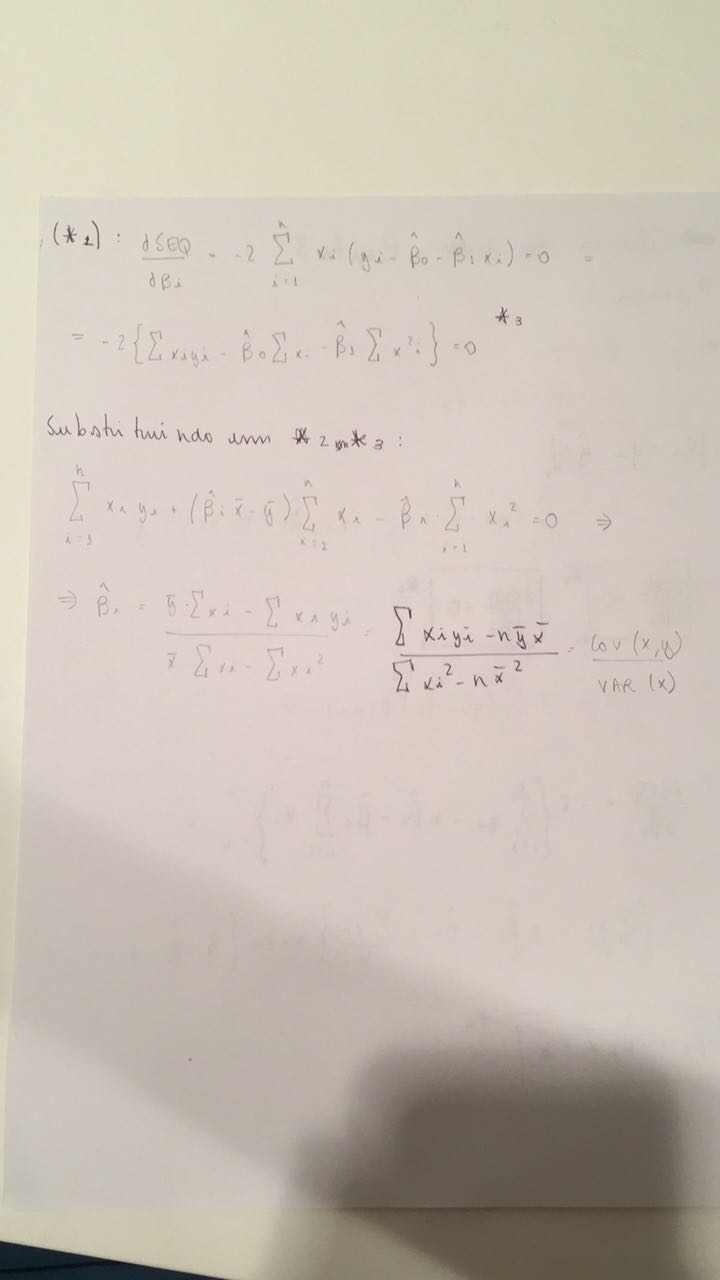 (*1): ∂SEQ/∂βi = -2 Σ_{i=1}^{n} xi (yi - β̂0 - β̂1 xi) = 0 =
= -2 { Σ xiyi - β̂0 Σ xi - β̂1 Σ x²i } = 0 *3
Substituindo em *2 em *3 :
Σ_{i=1}^{n} xi yi + (β̂i x̄ - ȳ) Σ_{i=1}^{n} xi - β̂i · Σ_{i=1}^{n} xi² = 0 ⇒
⇒ β̂i = (ȳ · Σ xi - Σ xi yi)/(x̄ Σ xi - Σ xi²) = (Σ xiyi - n ȳ x̄)/(Σ xi² - n x̄²) = cov (x,y)/VAR (x)